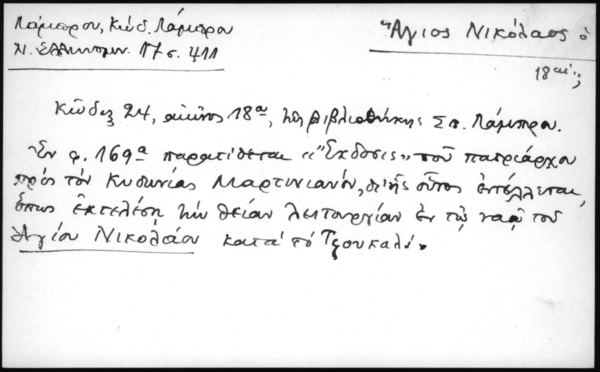 Λάμπρου, Κώδ. Λάμπρου
Ν. Ἑλληνομν. 17 σ. 411
Ἅγιος Νικόλαος ὁ
18 αἰ.;
Κῶδιξ 24, αἰῶνος 18ου, τῆς βιβλιοθήκης Σπ. Λάμπρου.
Ἐν φ. 169α παρατίθεται «Ἔκδοσις» τοῦ πατριάρχου
πρὸς τὸν Κυδωνίας Μαρτινιανόν, δι' ἧς οὗτος ἐντέλλεται,
ὅπως ἐκτελέσῃ τὴν θείαν λειτουργίαν ἐν τῷ ναῷ τοῦ
Ἁγίου Νικολάου κατὰ τὸ Τζουκαλι.